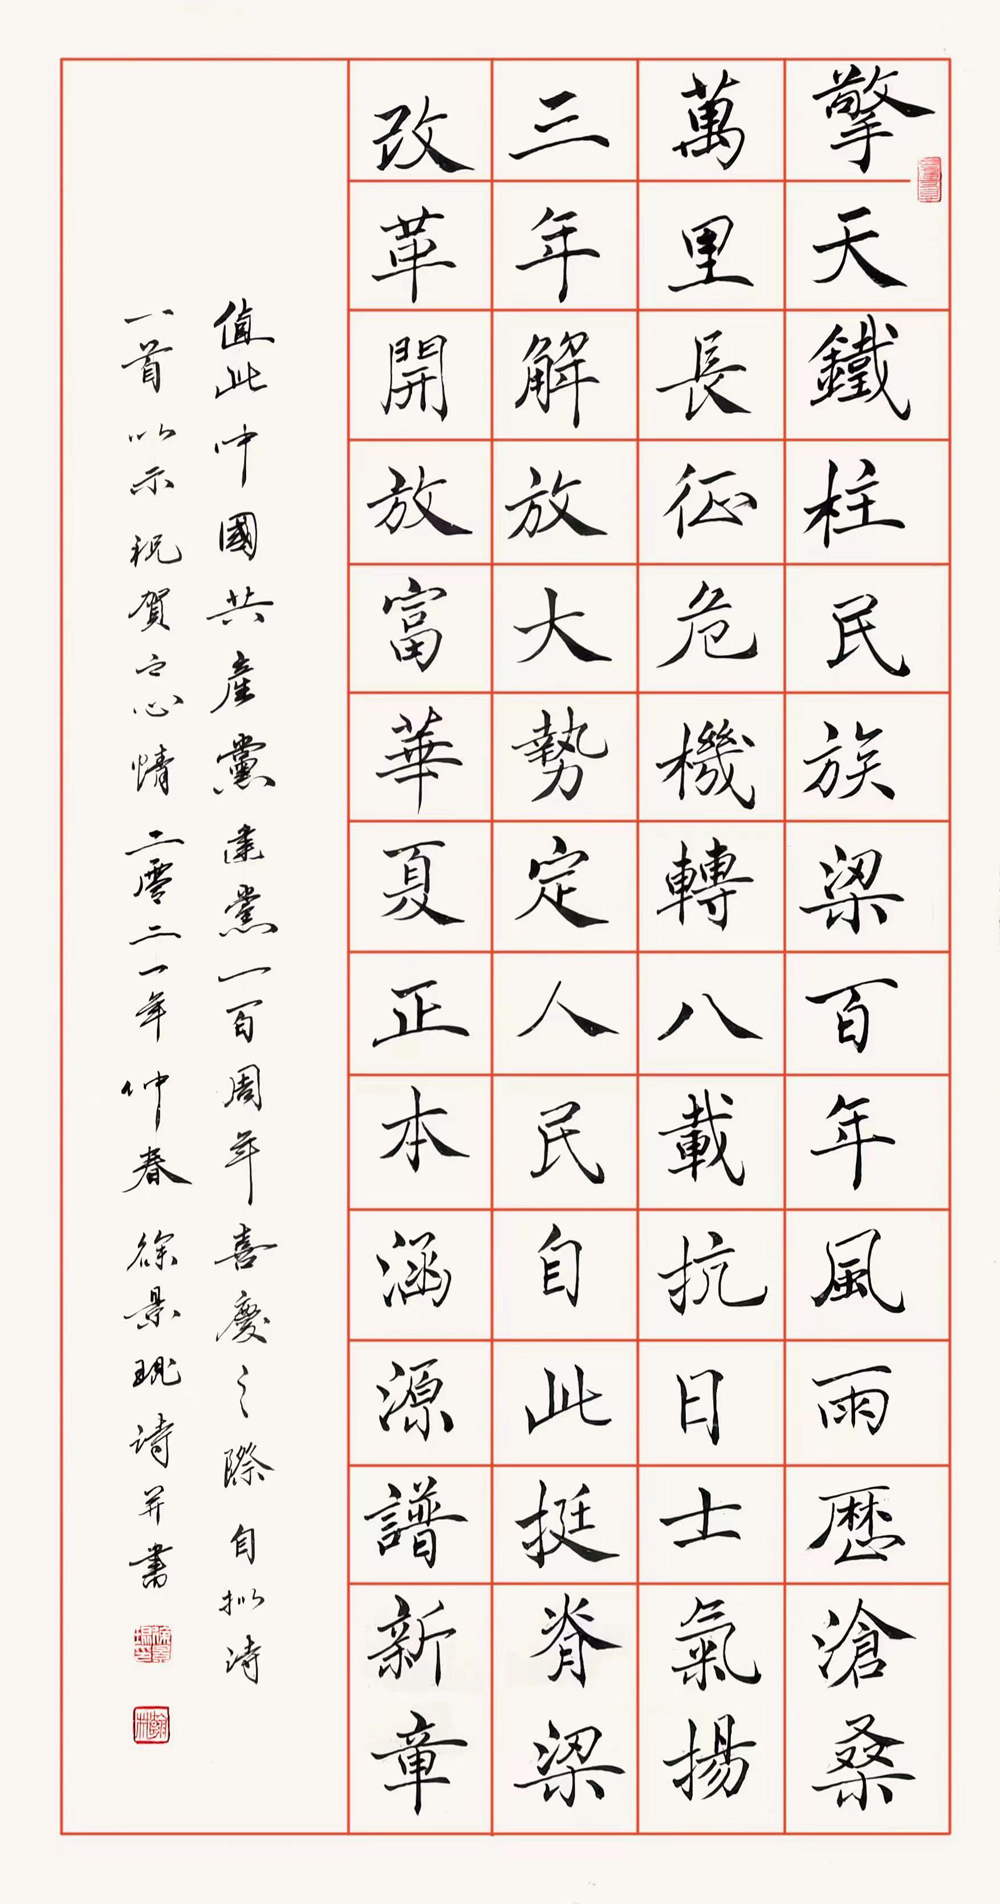 擎天鐵柱民族梁百年風雨歷滄桑
萬里長征危機轉八載抗日士氣揚
三年解放大勢定人民自此挺脊梁
改革開放富華夏正本涵源譜新章
值此中國共產黨建黨一百周年喜慶之際自拟诗
一首以示祝賀之心情二零二一年仲春徐景琨诗并書